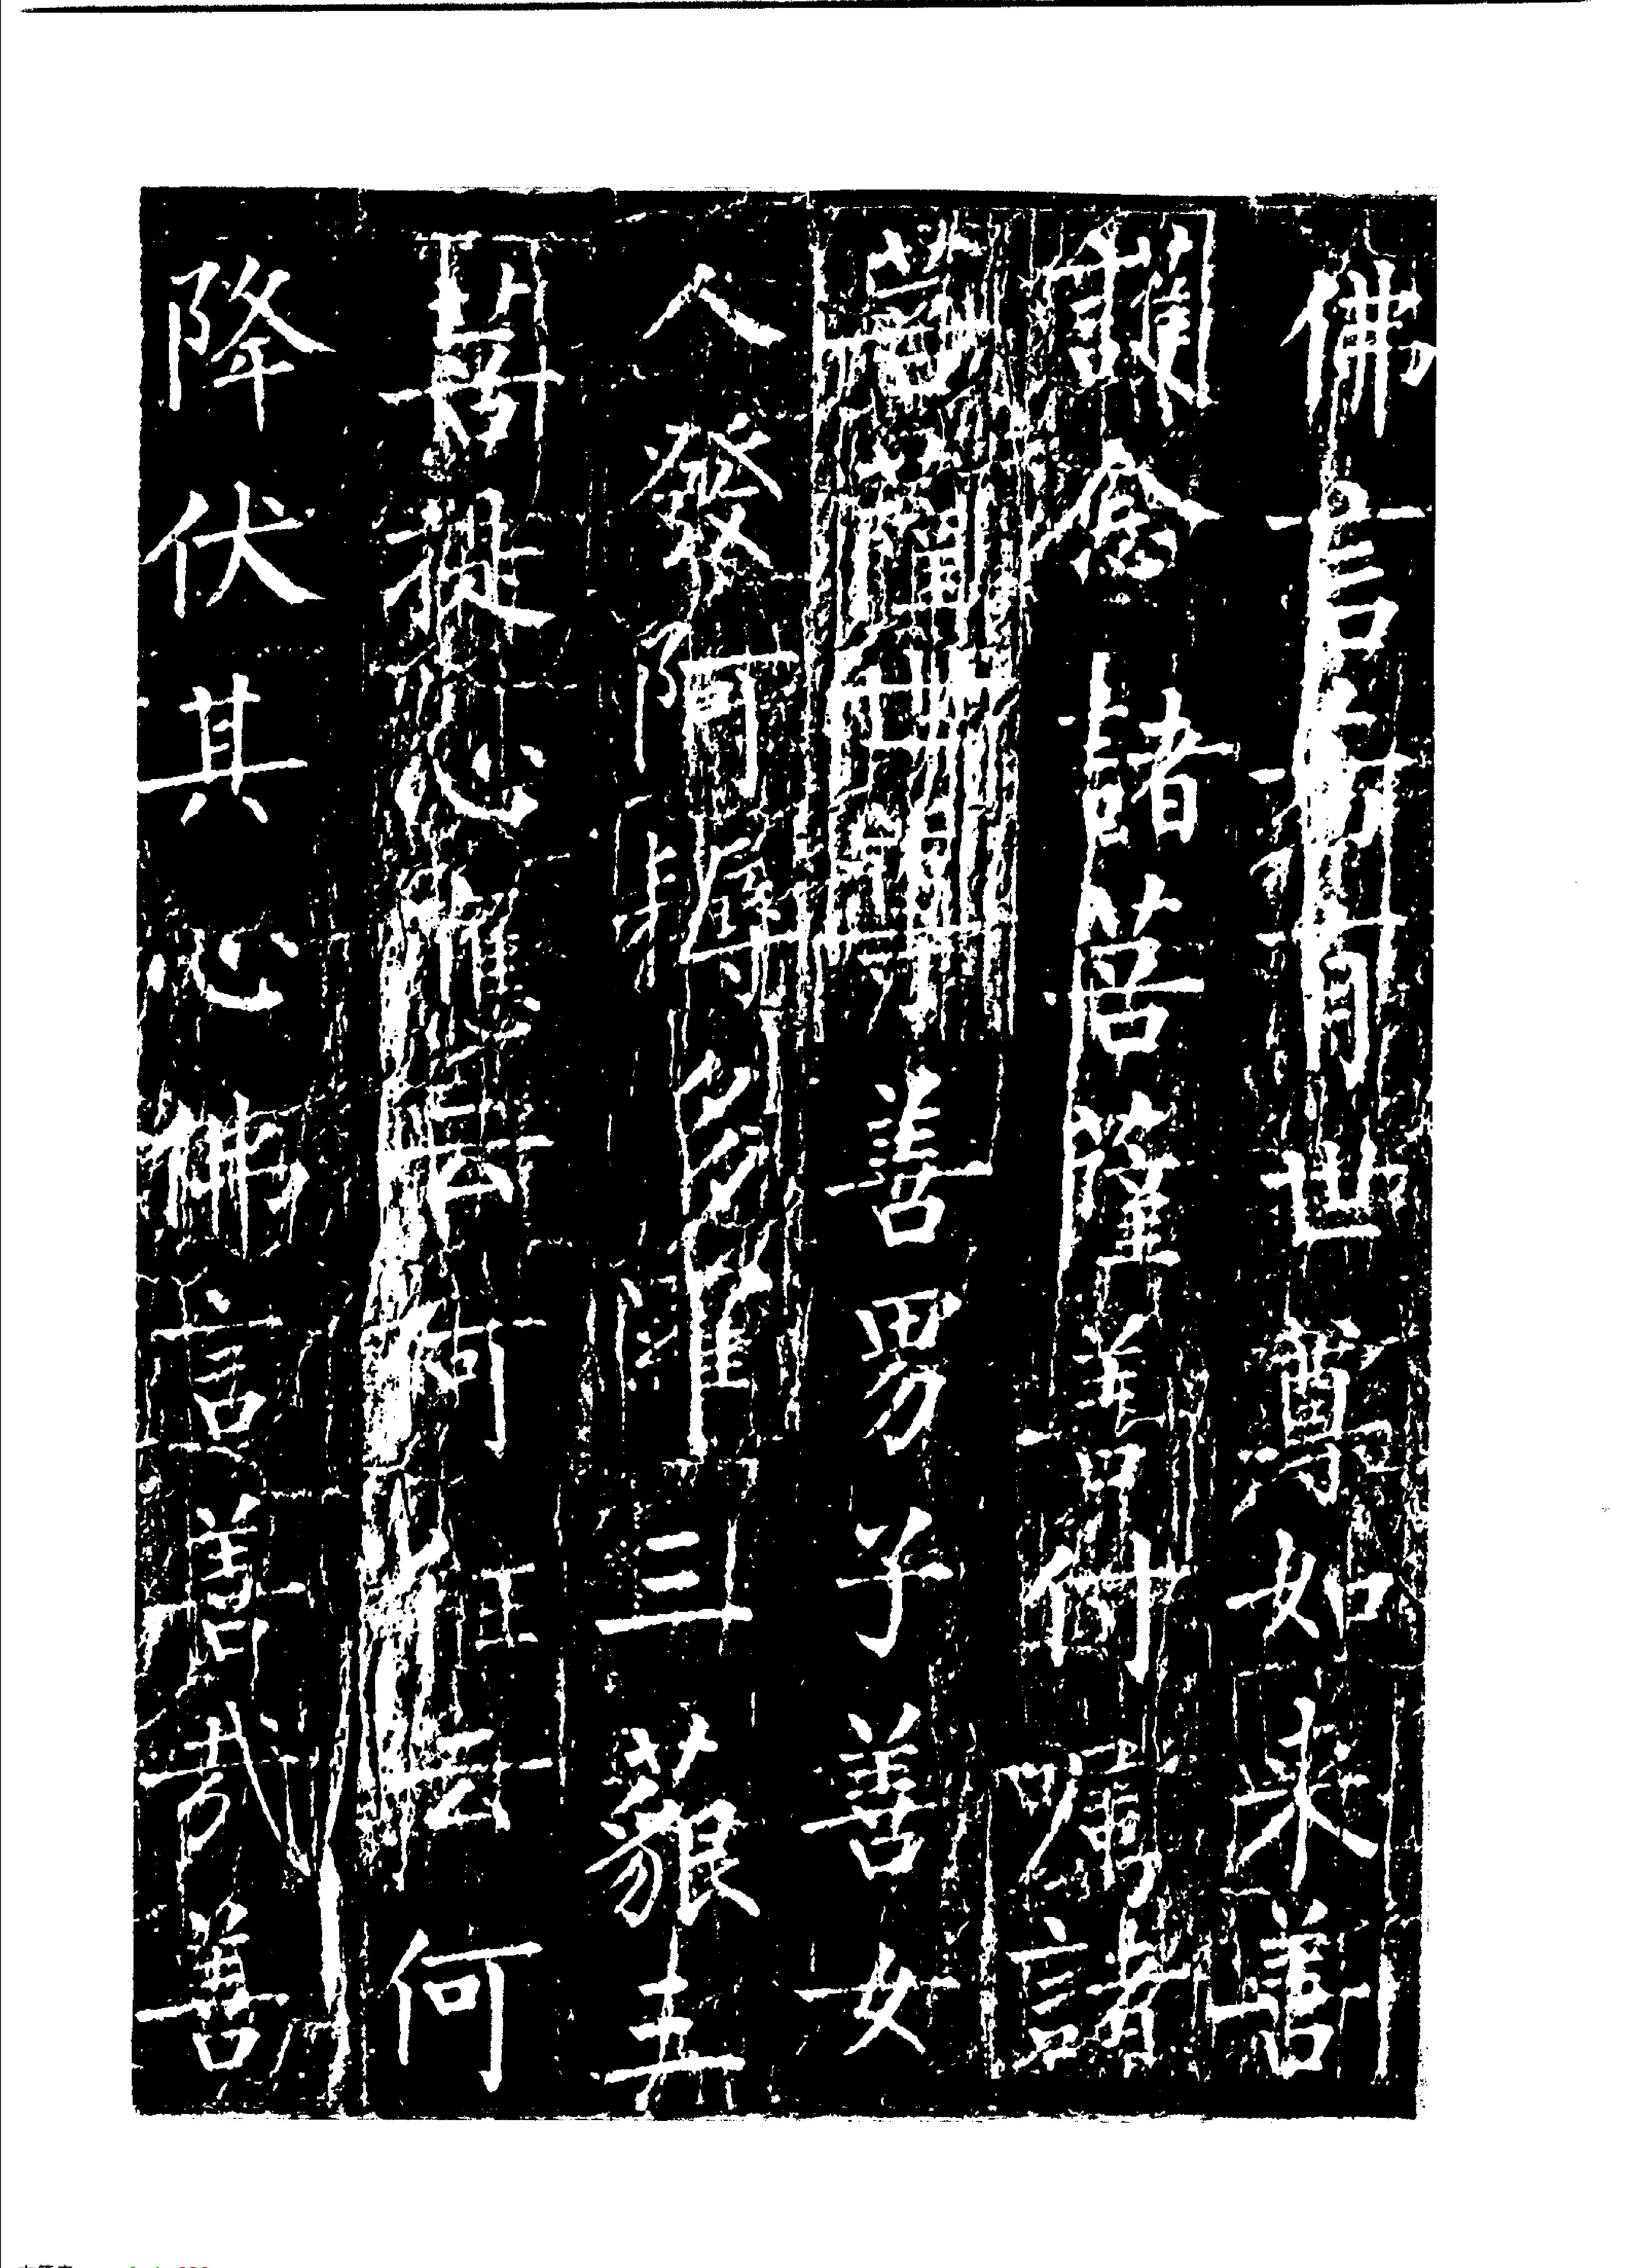 佛言希有世尊如來善
護念諸菩薩善付囑諸
菩薩世尊善男子善女
人發阿耨多羅三藐三
菩提心應云何住云何
降伏其心佛言善哉善